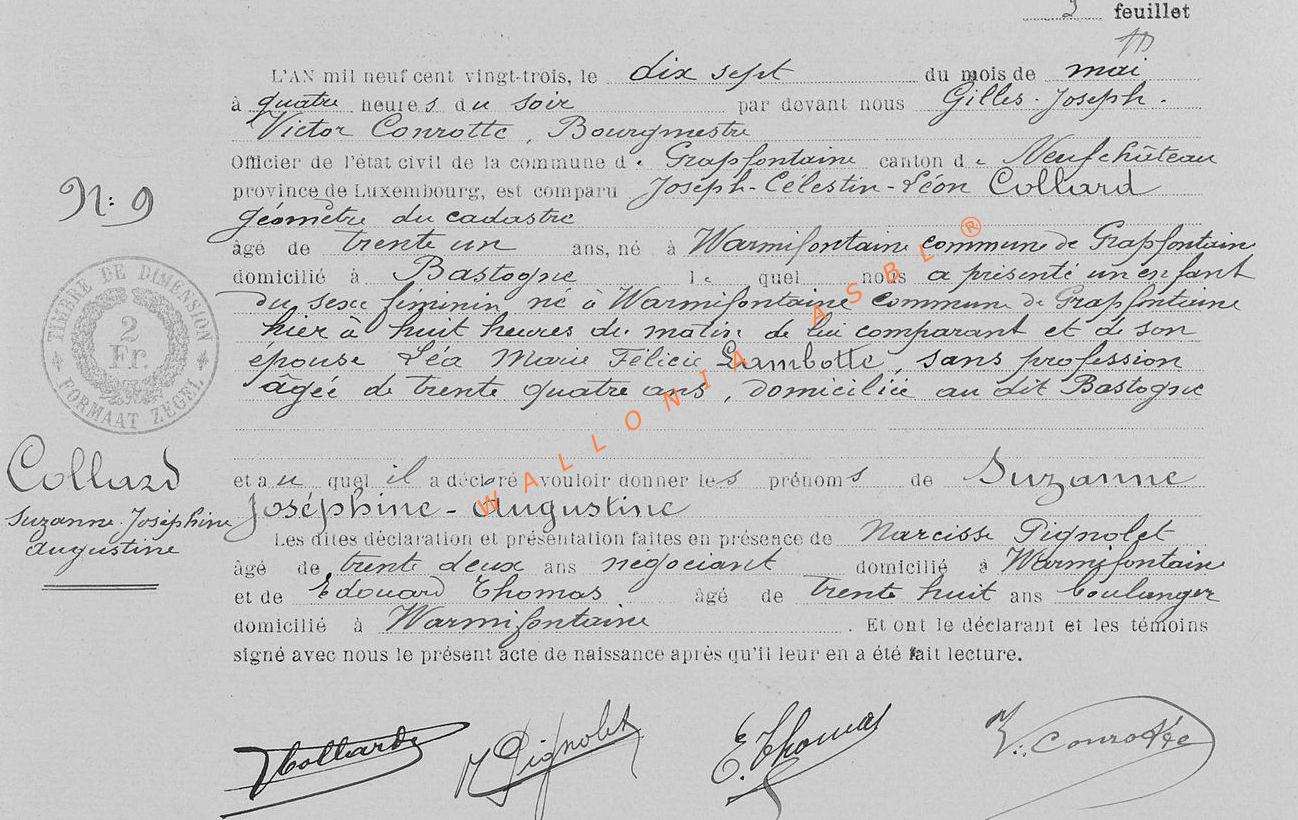 2 feuillet
L'AN mil neuf cent vingt-trois, le dix sept du mois de mai
à quatre heures du soir par devant nous Gilles-Joseph-
Victor Conrotte, Bourgmestre
Officier de l'état civil de la commune de Grapfontaine canton de Neufchâteau
province de Luxembourg, est comparu Joseph-Célestin-Léon Collard
géomètre du cadastre
âgé de trente un ans, né à Warmifontaine commune de Grapfontaine
domicilié à Bastogne Le quel nous a présenté un enfant
du sexe féminin né à Warmifontaine commune de Grapfontaine
hier à huit heures du matin de lui comparant et de son
épouse Léa Marie Félicie Lambotte, sans profession
âgée de trente quatre ans, domiciliée au dit Bastogne
et au quel il a déclaré vouloir donner les prénoms de Suzanne
Joséphine-Augustine
Les dites déclaration et présentation faites en présence de Narcisse Pignolet
âgé de trente deux ans négociant domicilié à Warmifontaine
et de Edouard Thomas âgé de trente huit ans boulanger
domicilié à Warmifontaine. Et ont le déclarant et les témoins
signé avec nous le présent acte de naissance après qu'il leur en a été fait lecture.
N: 9
TIMBRE DE DIMENSION
2
Fr.
FORMAAT ZEGEL
Collard
Suzanne-Joséphine
Augustine
JCollard N Pignolet E. Thomas V. Conrotte
WALLONIA ASBL ®